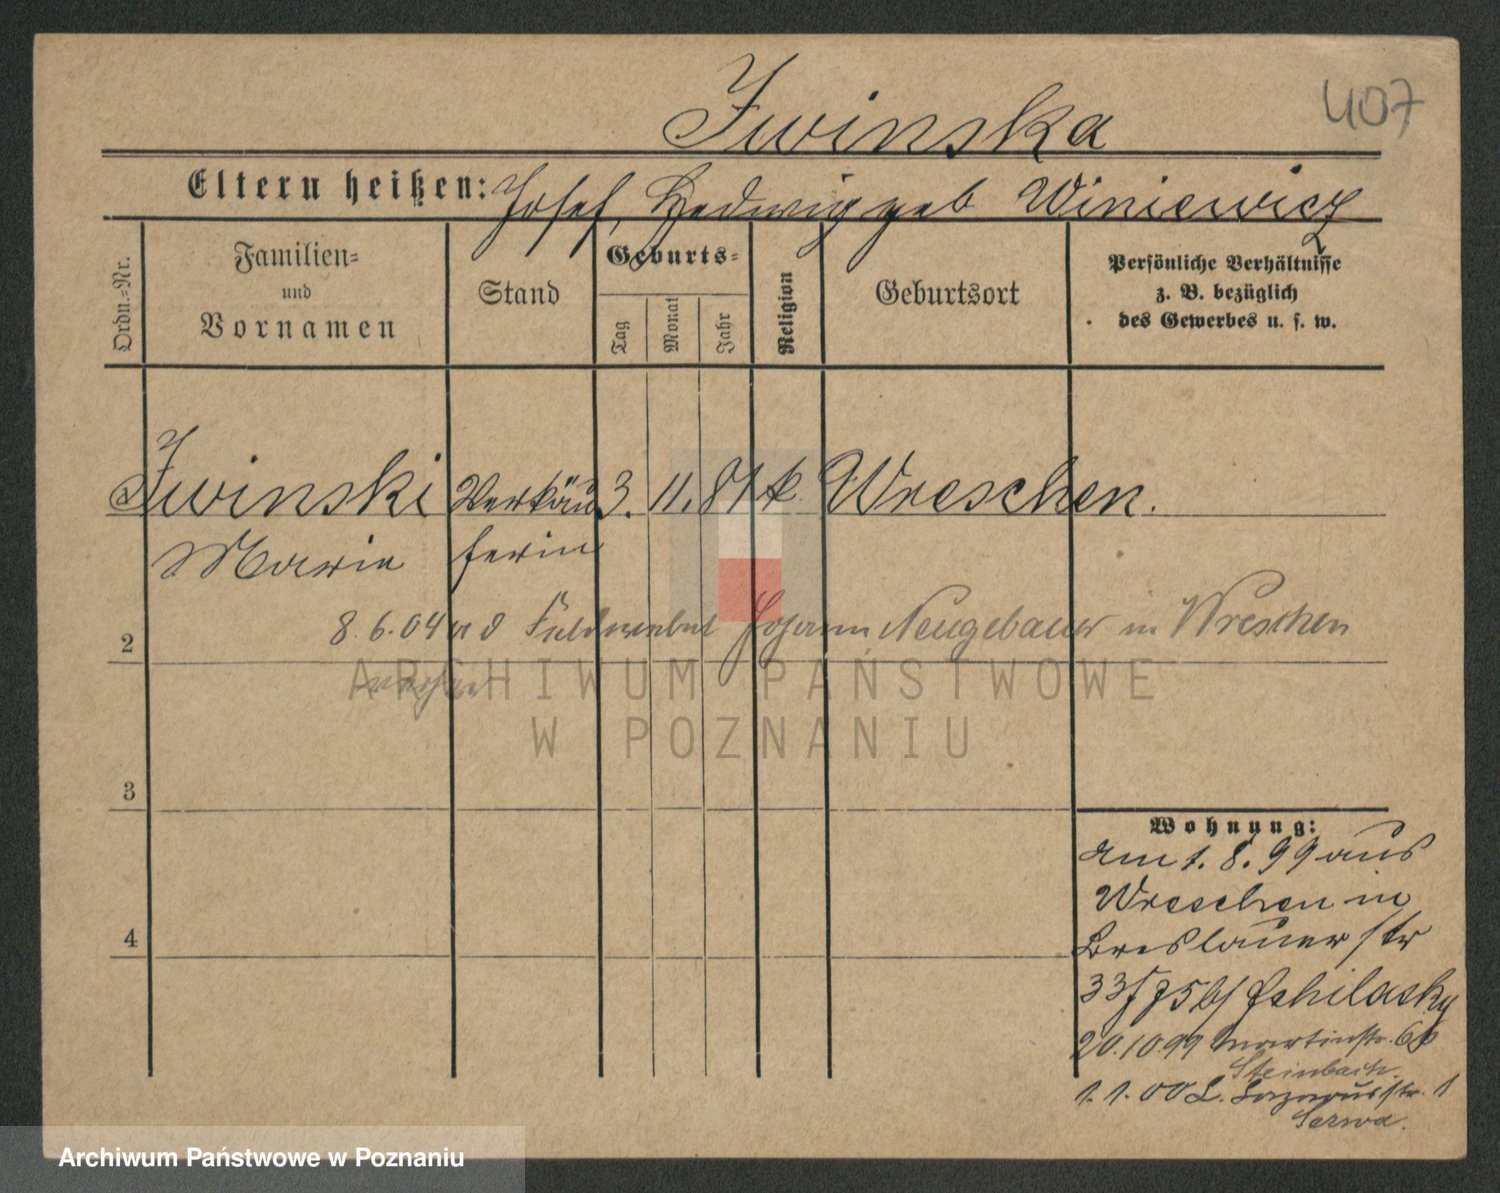 407
Iwinska
Eltern heißen: Josef, Hedwig geb Winiewicz
Ordn.=Nr.
Familien=
und
Vornamen
Stand
Geburts=
Tag
Monat
Jahr
Religion
Geburtsort
Persönliche Verhältnisse
z. B. bezüglich
des Gewerbes u. s. w.
Iwinski Verkäu 3. 11. 81 k Wreschen.
Marie ferin
8.6.04 a d Feldwebel Johann Neugebauer in Wreschen
2
ARCHIWUM PAŃSTWOWE
W POZNANIU
3
Wohnung:
am 1. 8. 99 aus
Wreschen in
4
Breslauer str
b/ Schilasky
20.10.99 Martinstr. 66
Steinbach.
1. 1. 00 L. Lazarusstr. 1
Serwa.
Archiwum Państwowe w Poznaniu